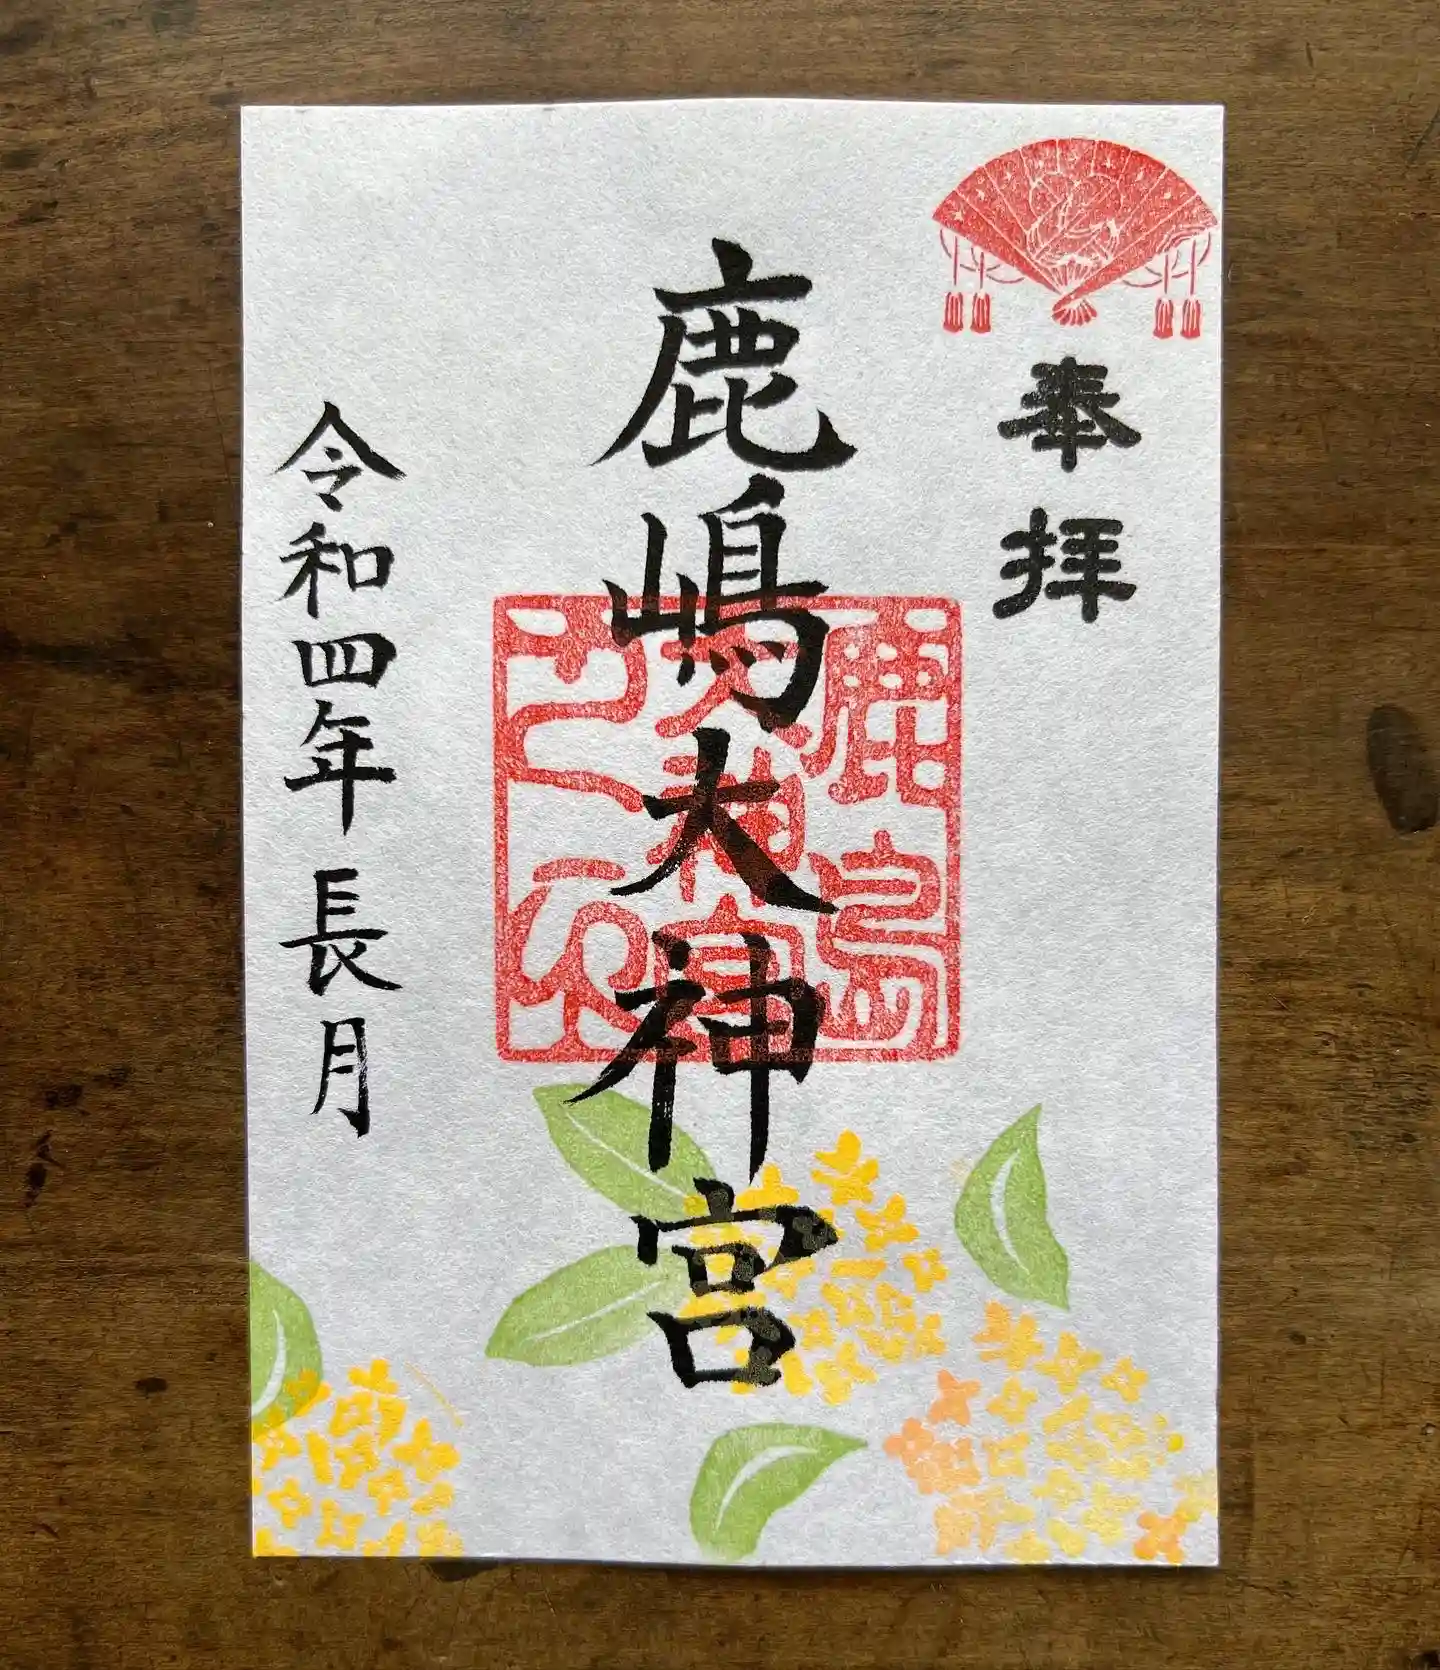 奉拝
鹿嶋大神宮
鹿島大神宮之印
令和四年長月